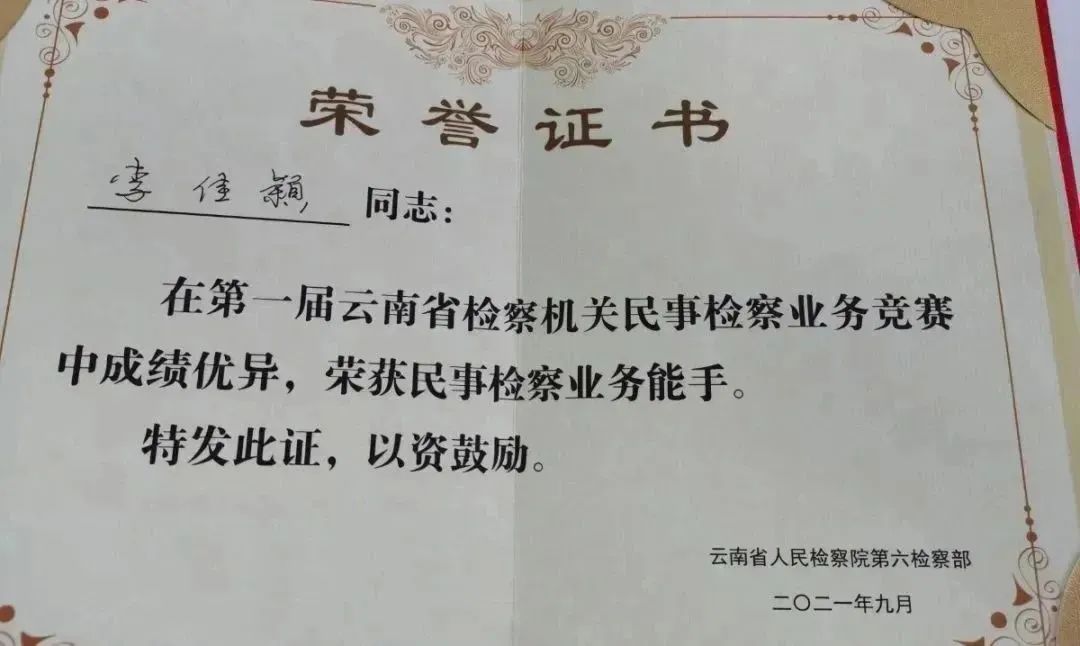 荣誉证书
李佳颖 同志：
在第一届云南省检察机关民事检察业务竞赛
中成绩优异，荣获民事检察业务能手。
特发此证，以资鼓励。
云南省人民检察院第六检察部
二〇二一年九月